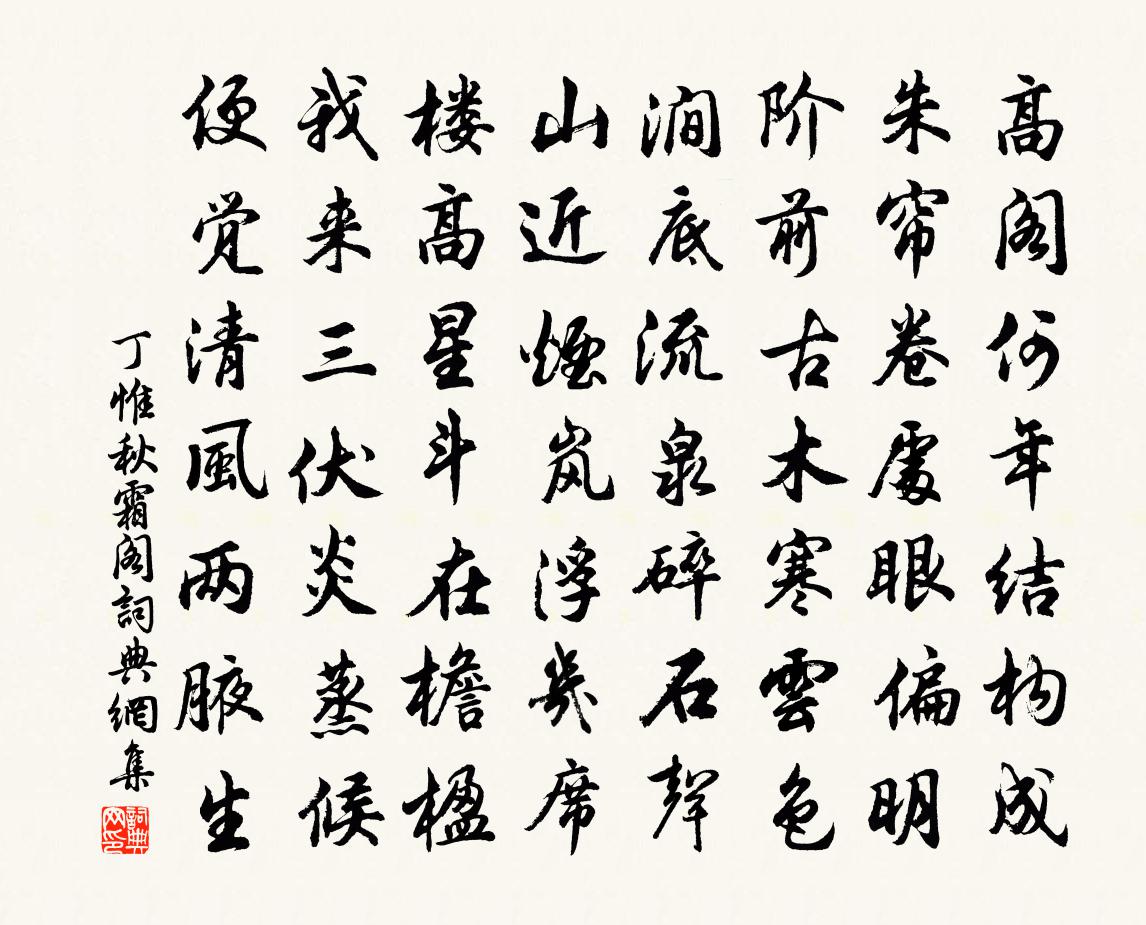 高阁何年结构成
朱帘卷处眼偏明
阶前古木寒雲色
涧底流泉碎石声
山近烟岚浮几席
楼高星斗在檐楹
我来三伏炎蒸候
便觉清風两腋生
丁惟秋霜阁詞典網集
詞典
网印